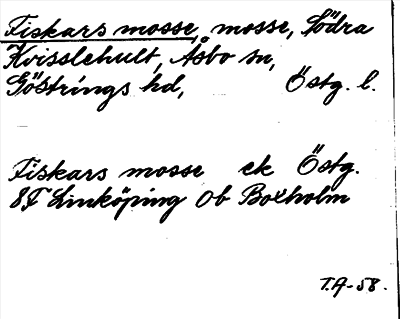 Fiskars mosse, mosse, Södra
Kvisslehult, Åsbo sn,
Göstrings hd, Östg. l.
Fiskars mosse ek Östg.
8F Linköping 0b Boxholm
T.A-58.